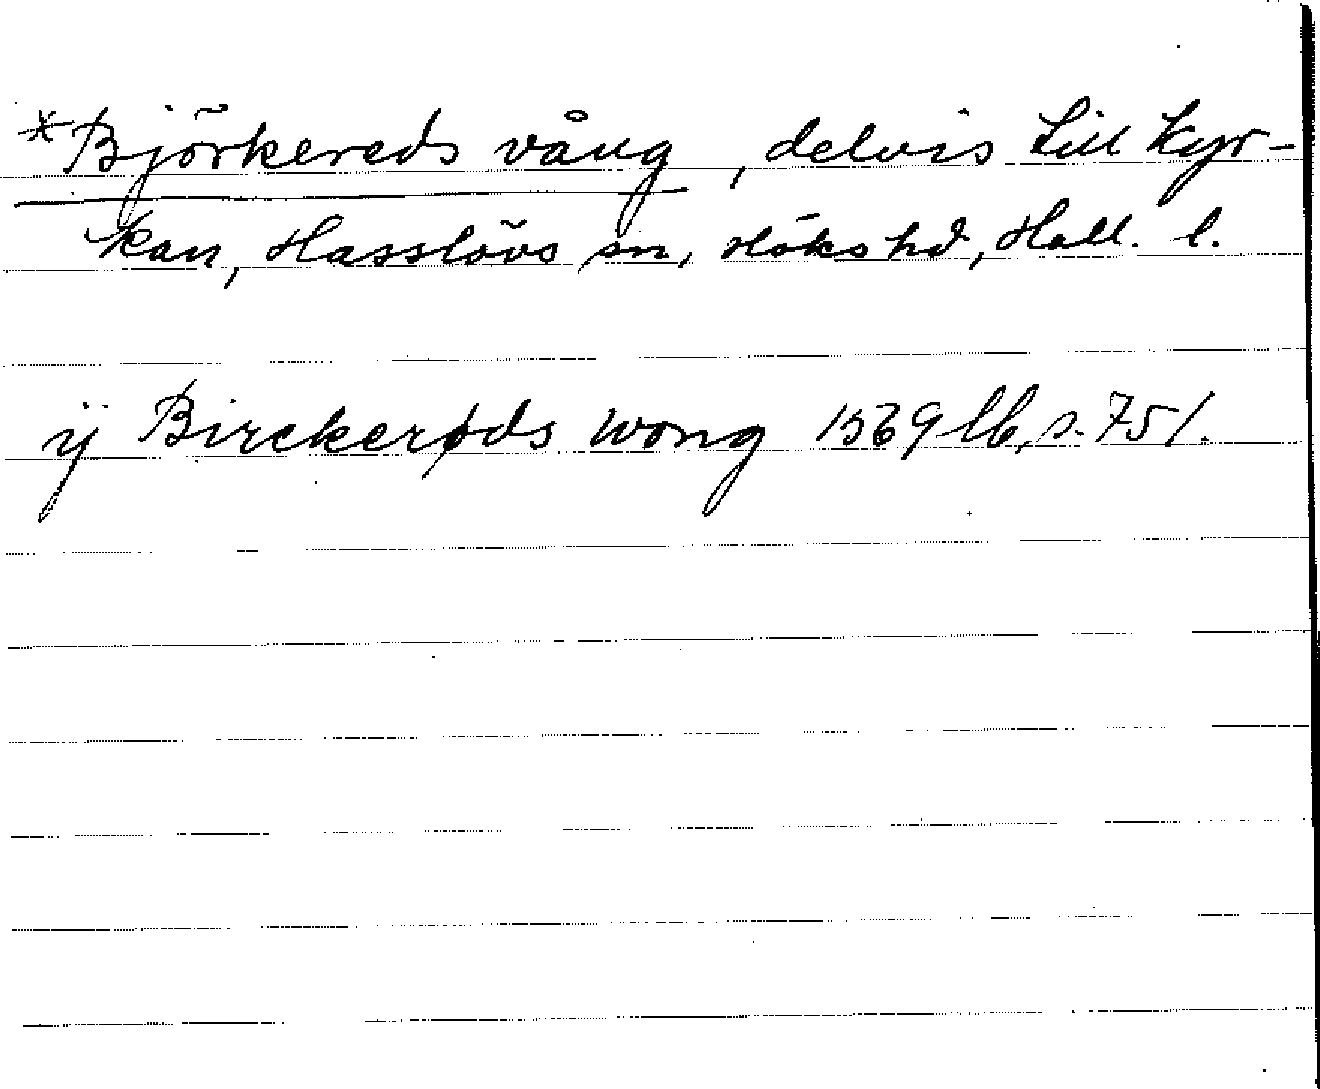 *Björkereds vång, delvis till Kyr-
kan, Hasslövs sn, Höks hd, Hall. l.
ÿ Birckerøds wong 1569 lb, s. 751.